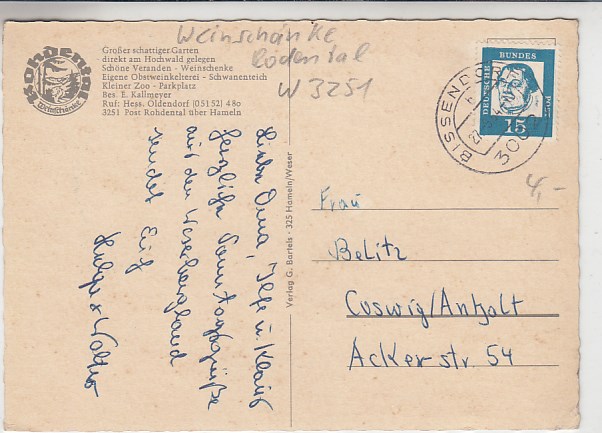 Weinschänke
Rodental
W 3251
Rohdental
Weinschänke
Großer schattiger Garten
direkt am Hochwald gelegen
Schöne Veranden - Weinschenke
Eigene Obstweinkelterei - Schwanenteich
Kleiner Zoo - Parkplatz
Bes. E. Kallmeyer
Ruf: Hess. Oldendorf (05152) 480
3251 Post Rohdental über Hameln
DEUTSCHE BUNDES POST
15
BISSENDORF
300
4,-
Liebe Oma, Ilse u. Klaus
herzliche Sonntagsgrüße
aus dem Weserbergland
sendet Euch
Helga + Walter
Verlag G. Bartels - 325 Hameln/Weser
Frau
Belitz
Coswig/Anhalt
Ackerstr. 54